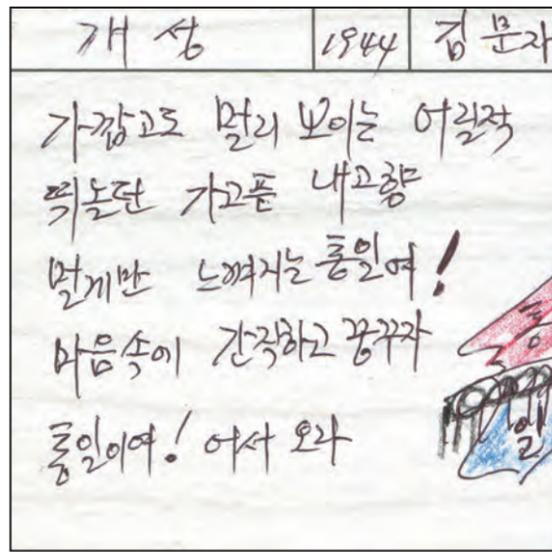 개성 1944 김문자
가깝고도 멀리 보이는 어릴작
띅놀던 가고픈 내고향
멀게만 느껴지는 통일여!
마음속에 간직하고 꿈꾸자
통일이여! 어서 오라
통
일